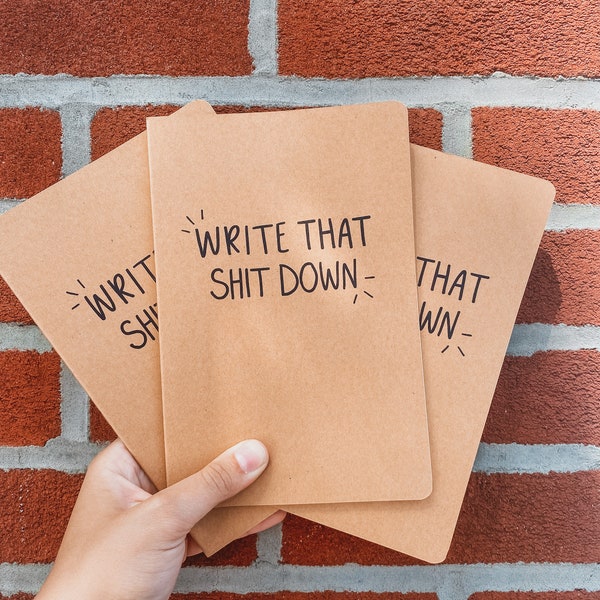 WRIT
SHI
WRITE THAT
SHIT DOWN
THAT
WN